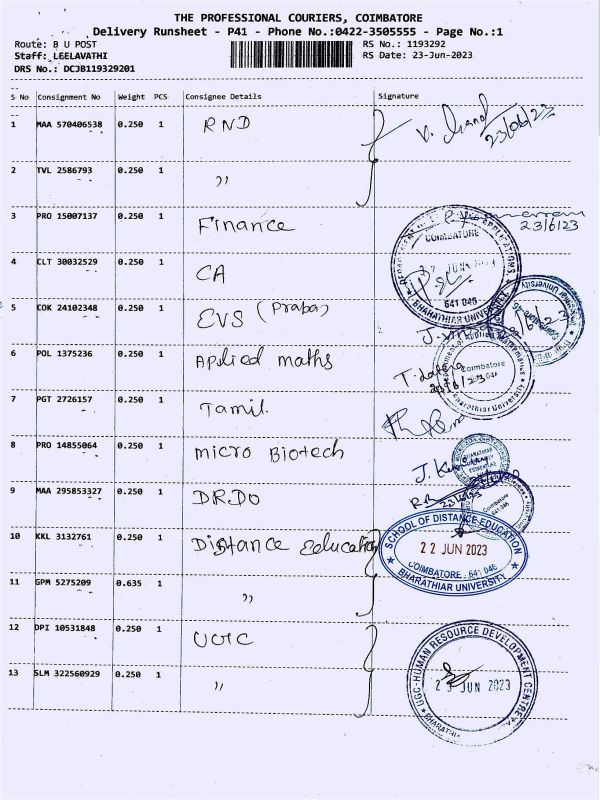 THE PROFESSIONAL COURIERS, COIMBATORE
Delivery Runsheet - P41 - Phone No.:0422-3505555 - Page No.:1
Route: B U POST RS No.: 1193292
Staff: LEELAVATHI RS Date: 23-Jun-2023
DRS No.: DCJB119329201
S No Consignment No Weight PCS Consignee Details Signature
1 MAA 570406538 0.250 1 RND 23/06/23
2 TVL 2586793 0.250 1 〃
3 PRO 15007137 0.250 1 Finance 23/6/23
COIMBATORE
4 CLT 30032529 0.250 1 CA
JUN 2023
641 046
BHARATHIAR UNIVERSITY
5 COK 24102348 0.250 1 EVS (Praba)
6 POL 1375236 0.250 1 Applied maths
Coimbatore
Bharathiar University
7 PGT 2726157 0.250 1 Tamil
8 PRO 14855064 0.250 1 micro Biotech
9 MAA 295853327 0.250 1 DRDO
10 KKL 3132761 0.250 1 Distance Education
SCHOOL OF DISTANCE EDUCATION
22 JUN 2023
COIMBATORE - 641 046
BHARATHIAR UNIVERSITY
11 GPM 5275209 0.635 1 〃
12 DPI 10531848 0.250 1 UGC
13 SLM 322560929 0.250 1 〃
UGC-HUMAN RESOURCE DEVELOPMENT CENTRE
JUN 2023